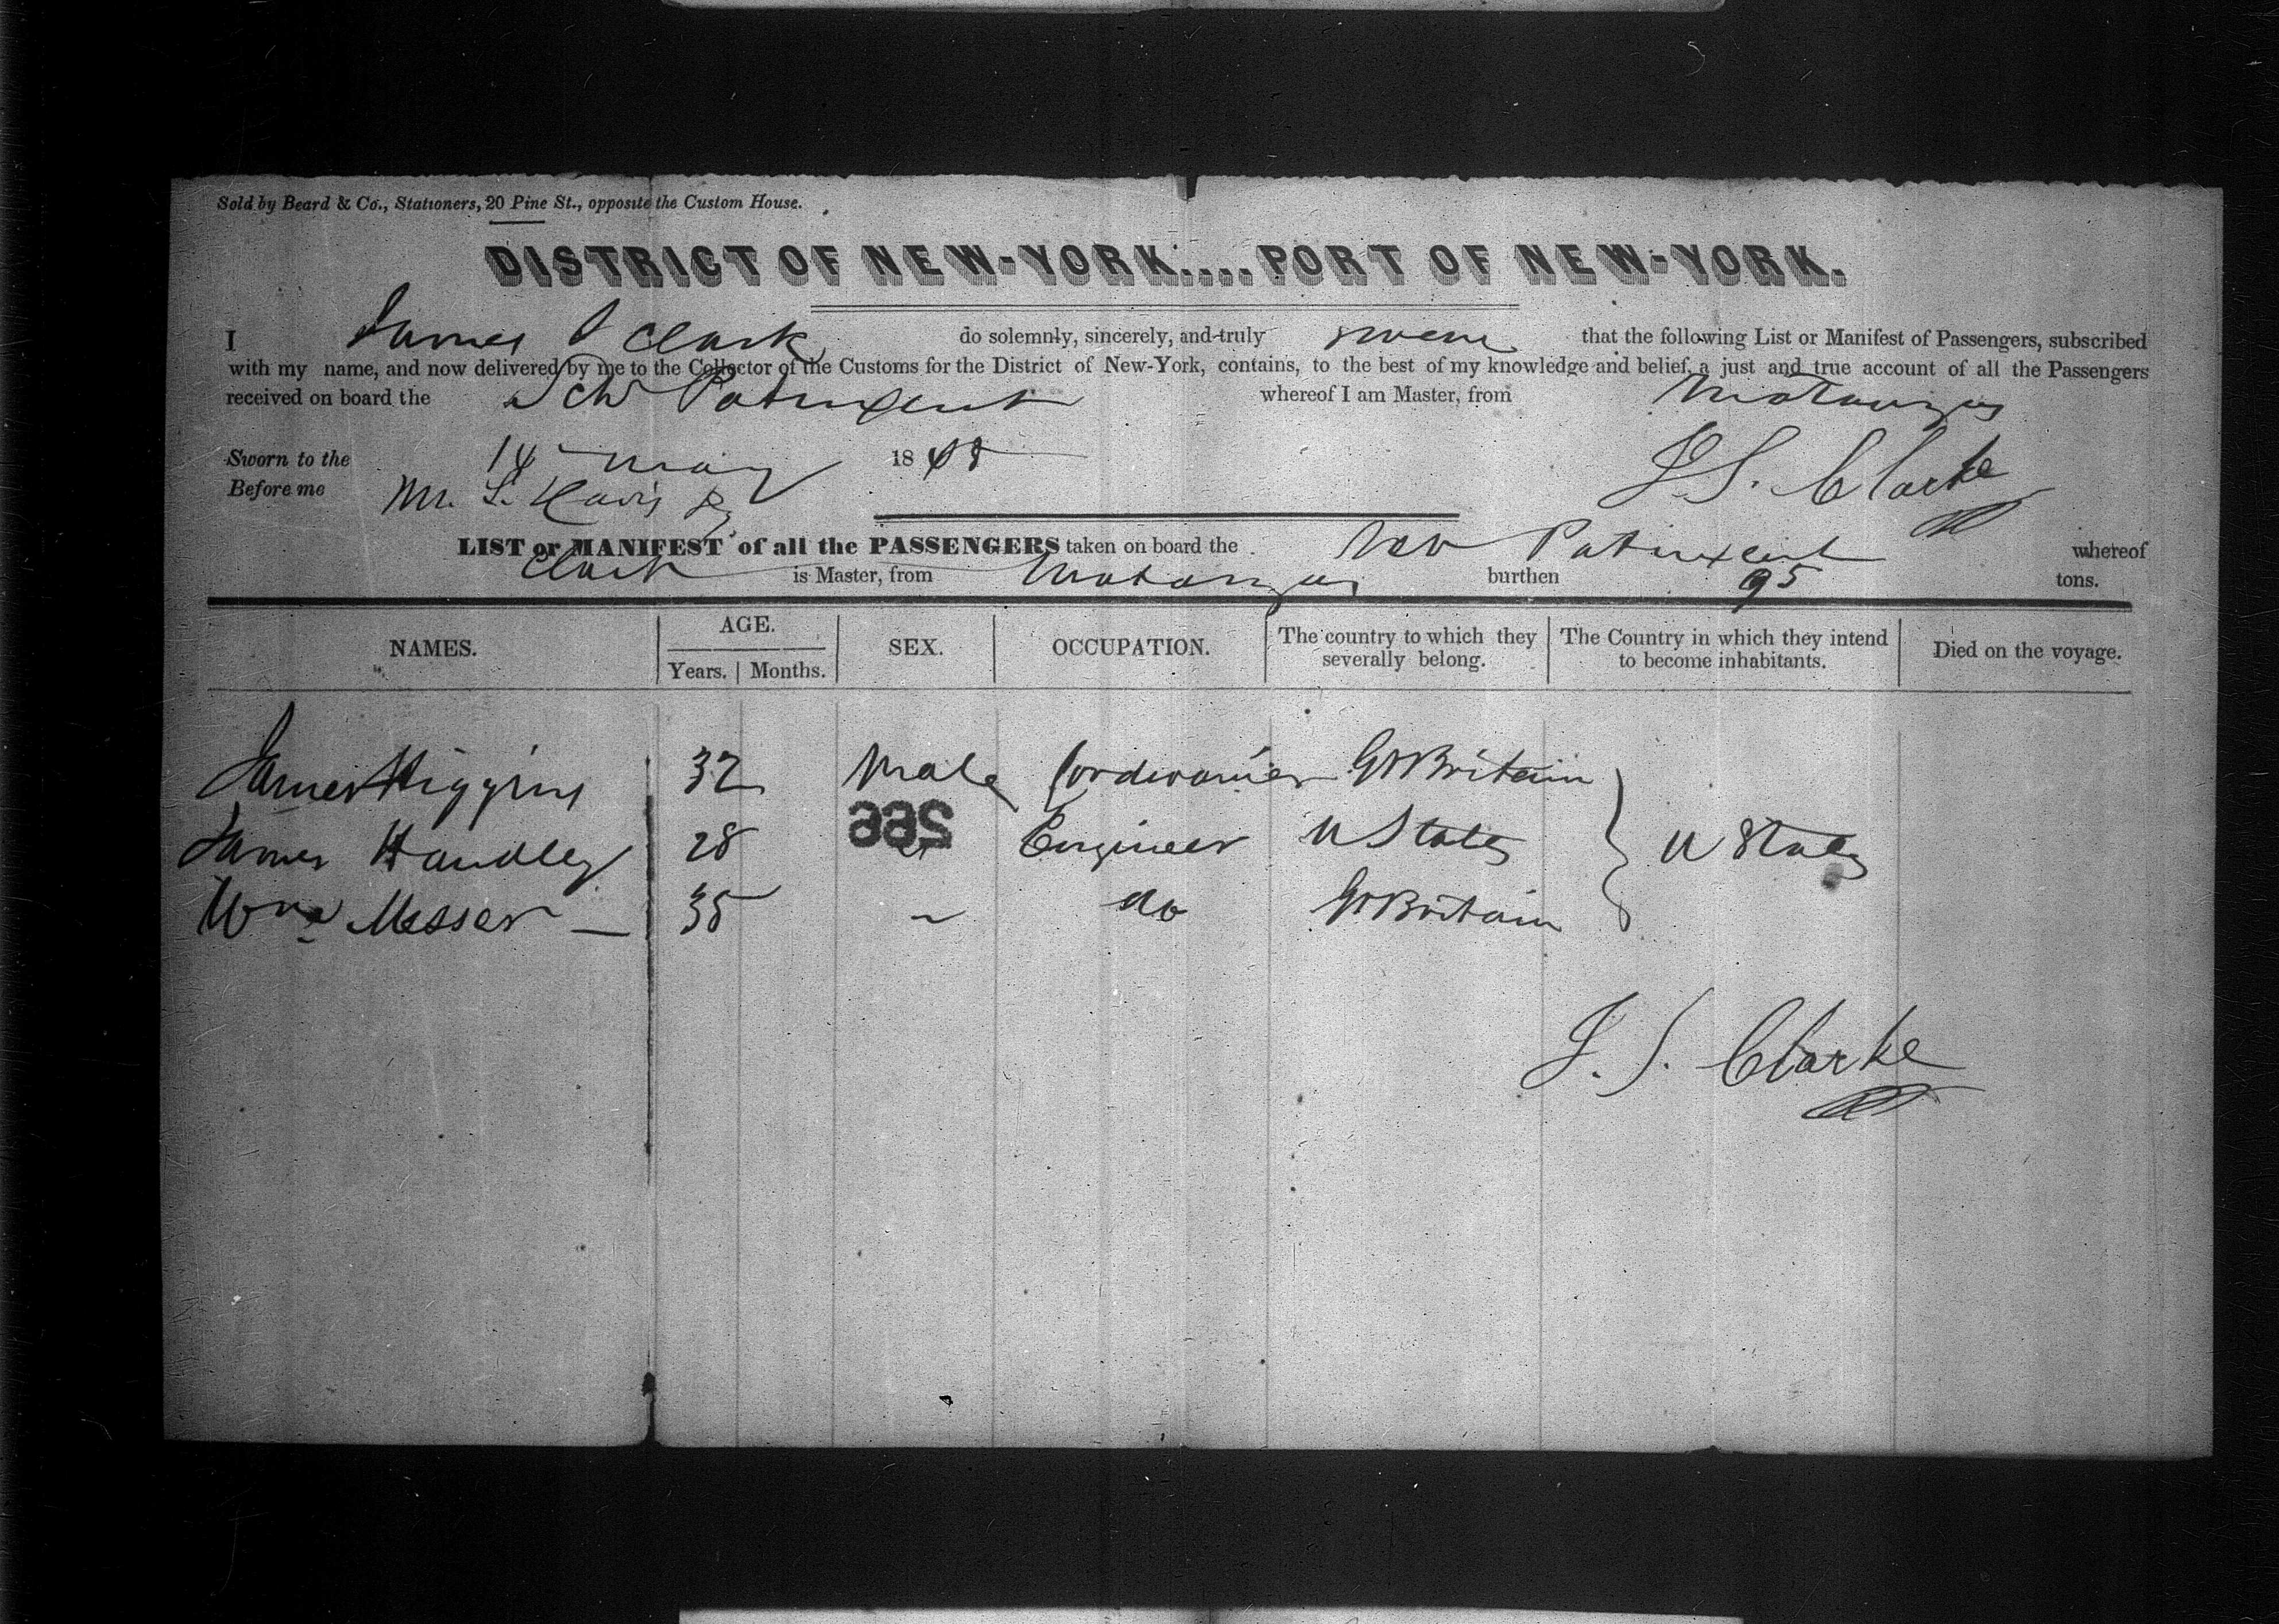 Sold by Beard & Co., Stationers, 20 Pine St., opposite the Custom House.
DISTRICT OF NEW-YORK....PORT OF NEW-YORK.
I James S Clark do solemnly, sincerely, and truly swear that the following List or Manifest of Passengers, subscribed
with my name, and now delivered by me to the Collector of the Customs for the District of New-York, contains, to the best of my knowledge and belief, a just and true account of all the Passengers
received on board the Schr Patuxent whereof I am Master, from Matanzas
Sworn to the 14 May 1848 J. S. Clarke
Before me
LIST or MANIFEST of all the PASSENGERS taken on board the Schr Patuxent whereof
Clark is Master, from Matanzas burthen 95 tons.
NAMES. AGE. Years. Months. SEX. OCCUPATION. The country to which they severally belong. The Country in which they intend to become inhabitants. Died on the voyage.
James Higgins 32 Male Cordwainer Gt Britain
James Handley 28 " Engineer U States U States
Wm Messer — 35 " do Gt Britain
J. S. Clarke